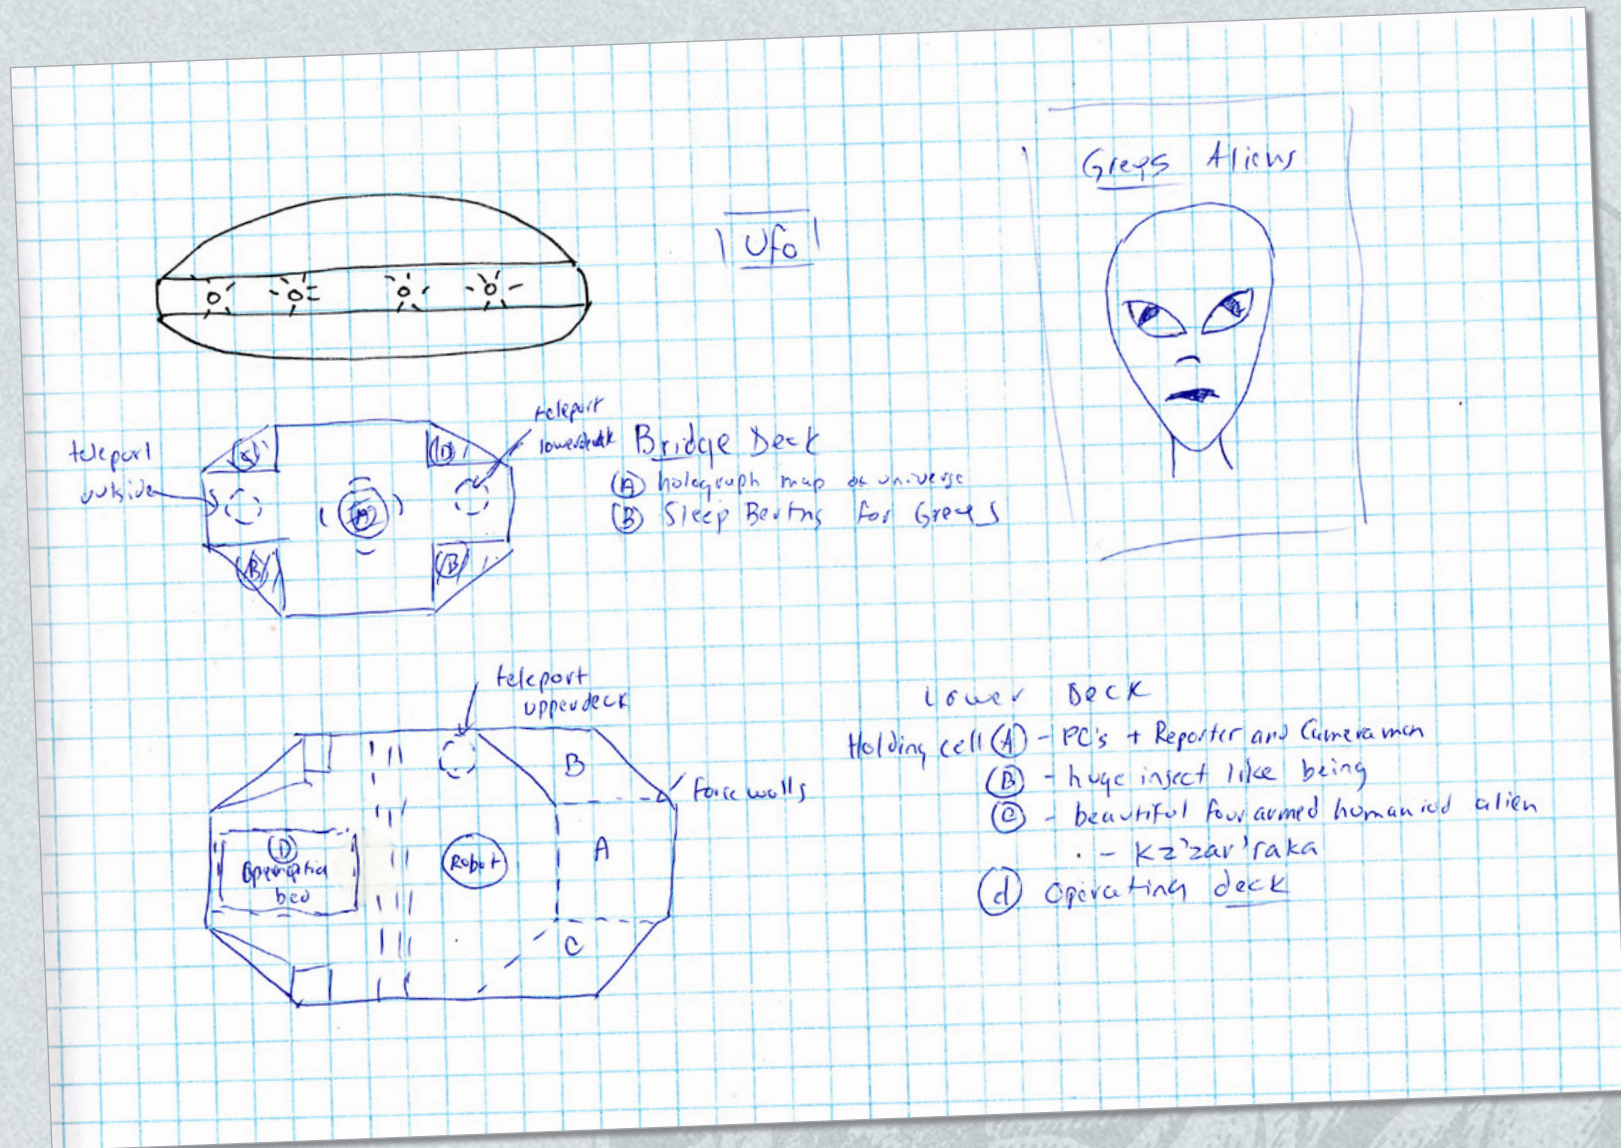 Greys Aliens
Ufo
teleport
outside
teleport
lowerdeck
A
B
B
Bridge Deck
(A) holograph map of universe
(B) Sleep Berths for Greys
teleport
upperdeck
B
Force walls
A
C
Robot
D
Operating
bed
Lower Deck
Holding cell (A) - PC's + Reporter and Cameraman
(B) - huge insect like being
(C) - beautiful four armed humanoid alien
- Kz'zar'raka
(d) Operating deck